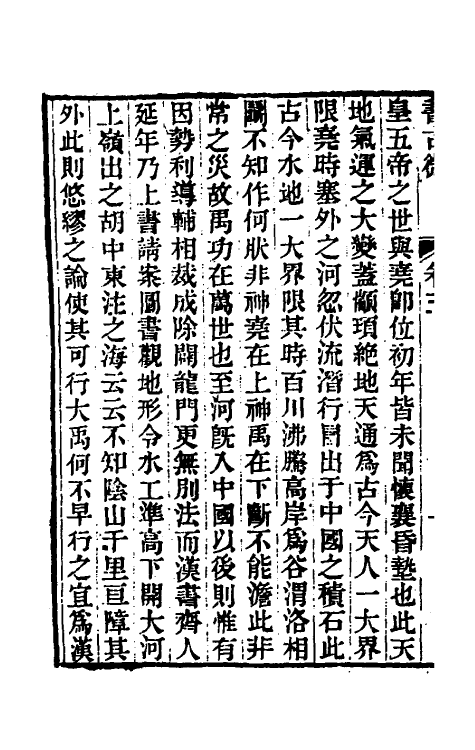 書古微
皇五帝之世與堯卽位初年皆未聞懷襄昏墊也此天
地氣運之大變蓋顓頊絶地天通爲古今天人一大界
限堯時塞外之河忽伏流潛行冒出于中國之積石此
古今水地一大界限其時百川沸騰高岸爲谷渭洛相
鬭不知作何狀非神堯在上神禹在下斷不能澹此非
常之災故禹功在萬世也至河旣入中國以後則惟有
因勢利導輔相裁成除闢龍門更無別法而漢書齊人
延年乃上書請案圖書觀地形令水工準高下開大河
上嶺出之胡中東注之海云云不知陰山千里亘障其
外此則悠繆之論使其可行大禹何不早行之宜爲漢